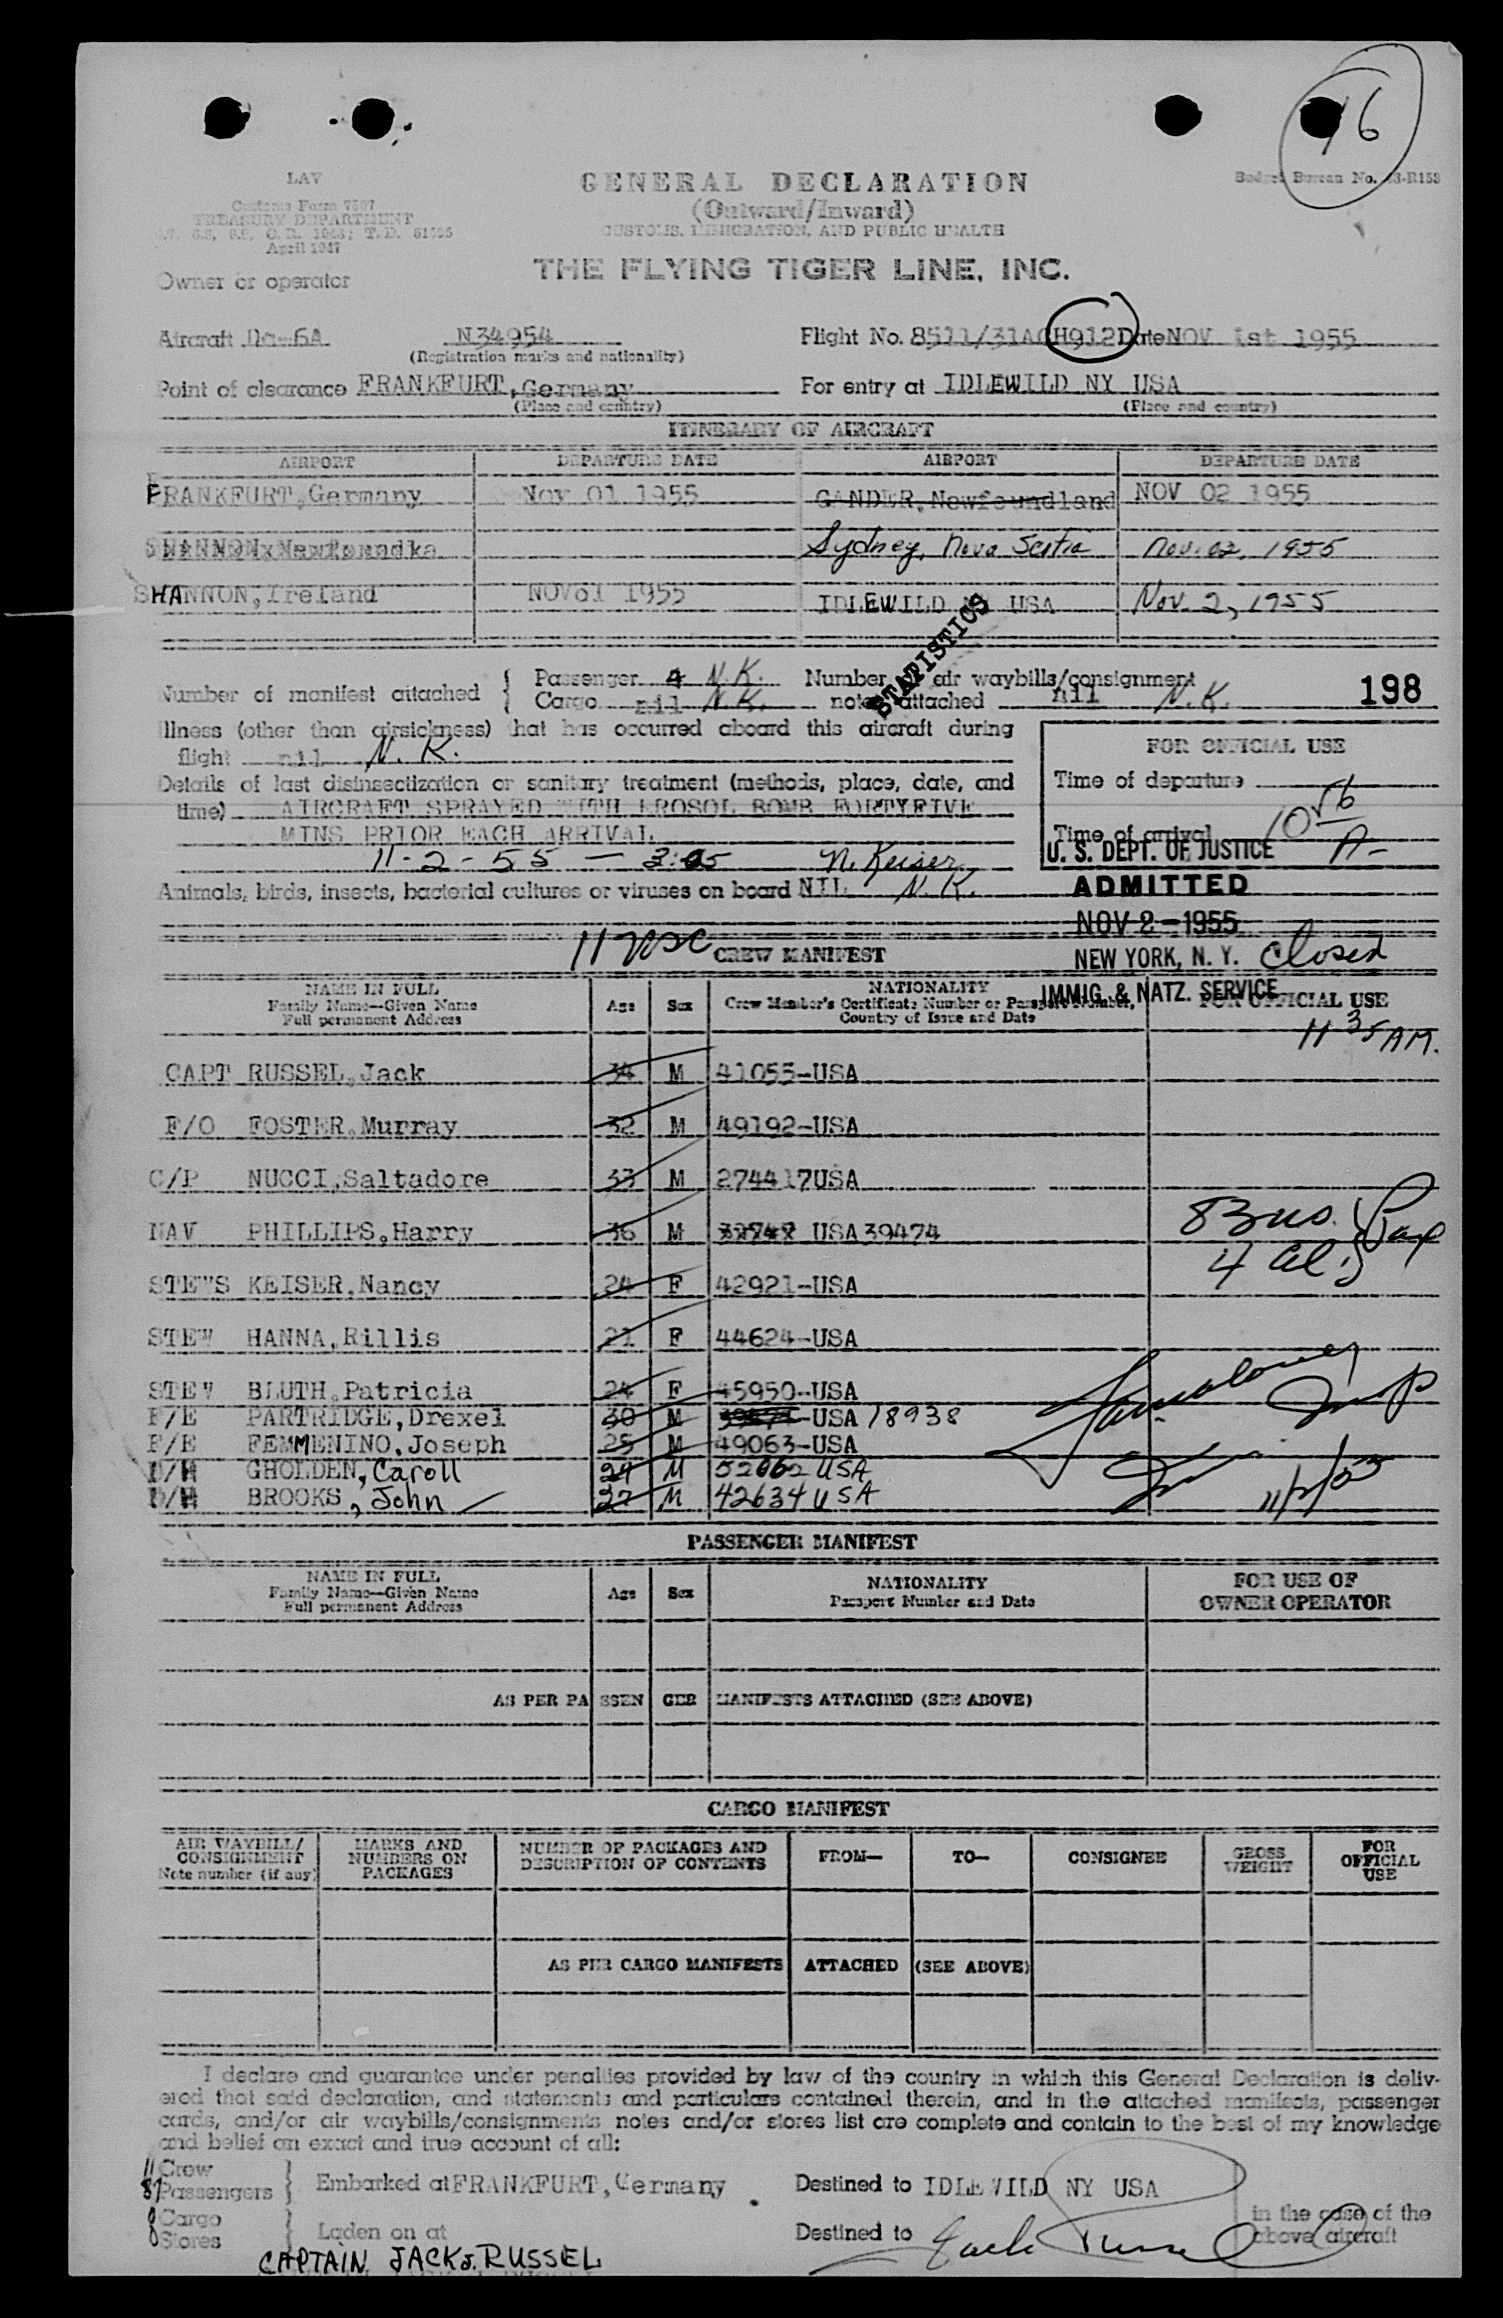 16
LAV
GENERAL DECLARATION
Budget Bureau No. 43-R153
Customs Form 7507
(Outward/Inward)
TREASURY DEPARTMENT
CUSTOMS, IMMIGRATION, AND PUBLIC HEALTH
April 1947
THE FLYING TIGER LINE, INC.
Owner or operator
Aircraft Dc-6A N34954 Flight No. 8511/31AC H912 Date NOV 1st 1955
(Registration marks and nationality)
Point of clearance FRANKFURT, Germany For entry at IDLEWILD NY USA
(Place and country) (Place and country)
ITINERARY OF AIRCRAFT
AIRPORT DEPARTURE DATE AIRPORT DEPARTURE DATE
FRANKFURT, Germany Nov 01 1955 GANDER, Newfoundland NOV 02 1955
Sydney, Nova Scotia Nov. 02, 1955
SHANNON, Ireland NOV 01 1955 IDLEWILD NY USA Nov. 2, 1955
STATISTICS
Number of manifest attached { Passenger 4 N.K. Number air waybills/consignment
Cargo nil N.K. notes attached nil N.K. 198
Illness (other than airsickness) that has occurred aboard this aircraft during
flight nil N.K.
FOR OFFICIAL USE
Details of last disinsectization or sanitary treatment (methods, place, date, and Time of departure
time) AIRCRAFT SPRAYED WITH EROSOL BOMB FORTYFIVE
MINS PRIOR EACH ARRIVAL Time of arrival 10 56 A-
11-2-55 — 3:05 N. Keiser
U. S. DEPT. OF JUSTICE
Animals, birds, insects, bacterial cultures or viruses on board NIL N.K.
ADMITTED
NOV 2 - 1955
NEW YORK, N. Y. Closed
IMMIG. & NATZ. SERVICE
11 35 AM.
CREW MANIFEST
NAME IN FULL Age Sex NATIONALITY FOR OFFICIAL USE
Family Name—Given Name Crew Member's Certificate Number or Passport Number,
Full permanent Address Country of Issue and Date
CAPT RUSSEL, Jack 34 M 41055-USA
F/O FOSTER, Murray 32 M 49192-USA
C/P NUCCI, Saltadore 33 M 274417USA
NAV PHILLIPS, Harry 36 M USA 39474
83 us. } Pax
4 al.
STEWS KEISER, Nancy 24 F 42921-USA
STEW HANNA, Rillis 21 F 44624-USA
STEW BLUTH, Patricia 24 F 45950-USA
F/E PARTRIDGE, Drexel 30 M USA 18938
F/E FEMMENINO, Joseph 25 M 49063-USA
D/H GHOLDEN, Caroll 24 M 52662 USA
D/H BROOKS, John 27 M 42634 USA
11/2/55
PASSENGER MANIFEST
NAME IN FULL Age Sex NATIONALITY FOR USE OF
Family Name—Given Name Passport Number and Date OWNER OPERATOR
Full permanent Address
AS PER PASSENGER MANIFESTS ATTACHED (SEE ABOVE)
CARGO MANIFEST
AIR WAYBILL/ MARKS AND NUMBER OF PACKAGES AND FROM— TO— CONSIGNEE GROSS FOR
CONSIGNMENT NUMBERS ON DESCRIPTION OF CONTENTS WEIGHT OFFICIAL
Note number (if any) PACKAGES USE
AS PER CARGO MANIFESTS ATTACHED (SEE ABOVE)
I declare and guarantee under penalties provided by law of the country in which this General Declaration is deliv-
ered that said declaration, and statements and particulars contained therein, and in the attached manifests, passenger
cards, and/or air waybills/consignments notes and/or stores list are complete and contain to the best of my knowledge
and belief an exact and true account of all:
11 Crew
87 Passengers } Embarked at FRANKFURT, Germany Destined to IDLEWILD NY USA
in the case of the
Cargo
Stores } Laden on at Destined to above aircraft
Jack Russel
CAPTAIN JACK J. RUSSEL